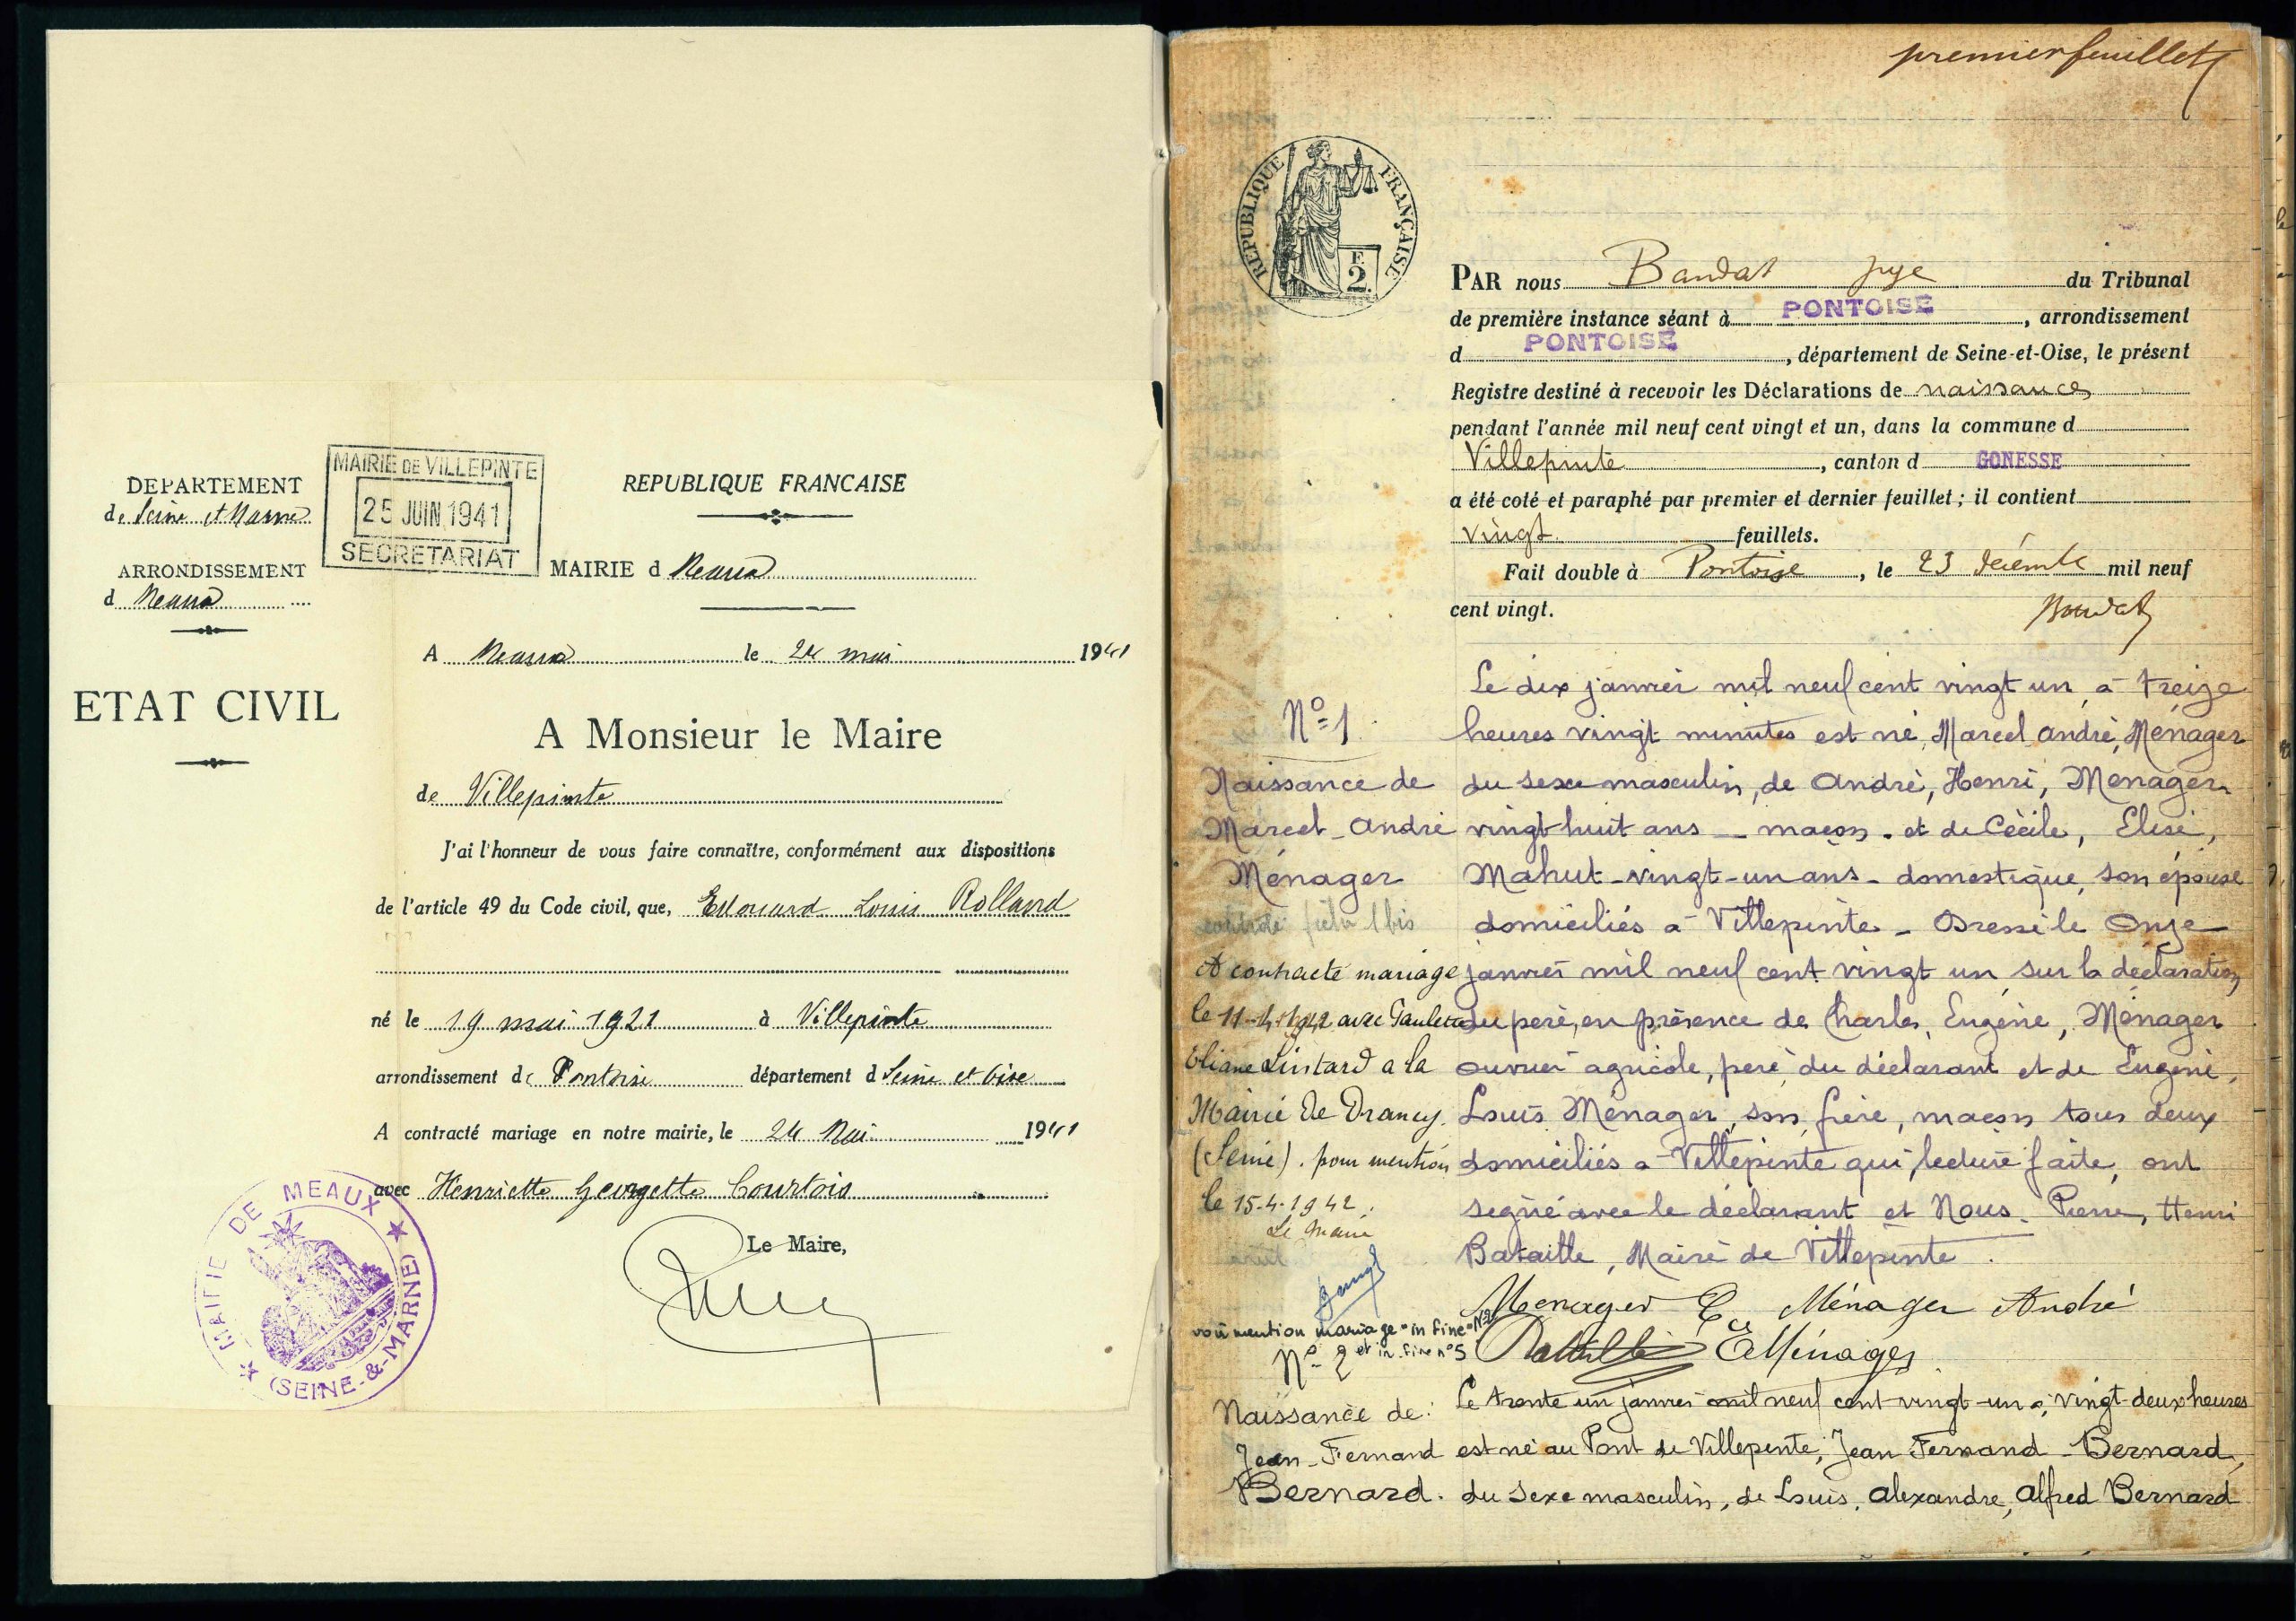 DEPARTEMENT
de Seine et Marne
ARRONDISSEMENT
d Meaux
ETAT CIVIL
MAIRIE DE VILLEPINTE
25 JUIN 1941
SECRETARIAT
REPUBLIQUE FRANCAISE
MAIRIE d Meaux
A Meaux le 24 mai 1941
A Monsieur le Maire
de Villepinte
J'ai l'honneur de vous faire connaître, conformément aux dispositions
de l'article 49 du Code civil, que, Edouard Louis Rolland
né le 19 mai 1921 à Villepinte
arrondissement de Pontoise département d Seine et Oise
A contracté mariage en notre mairie, le 24 Mai 1941
avec Henriette Georgette Courtois
Le Maire,
MAIRIE DE MEAUX
(SEINE-&-MARNE)
premier feuillet
REPUBLIQUE FRANÇAISE
F. 2.
PAR nous Bandat juge du Tribunal
de première instance séant à PONTOISE, arrondissement
d PONTOISE, département de Seine-et-Oise, le présent
Registre destiné à recevoir les Déclarations de naissances
pendant l'année mil neuf cent vingt et un, dans la commune d
Villepinte, canton d GONESSE
a été coté et paraphé par premier et dernier feuillet ; il contient
vingt feuillets.
Fait double à Pontoise, le 23 décembre mil neuf
cent vingt.
Bandat
N° 1
Naissance de
Marcel André
Ménager
A contracté mariage
le 11-4-1942 avec Paulette
Eliane Lintard à la
Mairie de Drancy
(Seine). pour mention
le 15-4-1942.
Le Maire
Le dix janvier mil neuf cent vingt un à treize
heures vingt minutes est né, Marcel André, Ménager
du sexe masculin, de André, Henri, Ménager
vingt huit ans - maçon - et de Cécile, Elise,
Mahut - vingt-un ans - domestique, son épouse
domiciliés à Villepinte - Dressé le onze
janvier mil neuf cent vingt un, sur la déclaration
du père, en présence de Charles, Eugène, Ménager
ouvrier agricole, père du déclarant et de Eugène,
Louis Ménager, son frère, maçon tous deux
domiciliés à Villepinte qui, lecture faite, ont
signé avec le déclarant et Nous. Pierre, Henri
Bataille, Maire de Villepinte.
Menager C Ménager André
Bataille E Ménager
voir mention mariage "in fine"
N° 2 et in fine n°5
Naissance de:
Jean-Fernand
Bernard.
Le trente un janvier mil neuf cent vingt-un à vingt-deux heures
est né au Pont de Villepinte, Jean Fernand - Bernard,
du sexe masculin, de Louis, Alexandre, Alfred Bernard